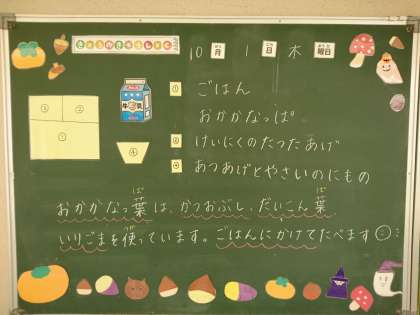 きょうのきゅうしょく
10月 1日 木曜日
① ごはん
おかかなっぱ
② けいにくのたつたあげ
④ あつあげとやさいのにもの
③ ②
①
④
牛乳
おかかなっ葉は、かつおぶし、だいこん葉、
いりごまを使っています。ごはんにかけてたべます